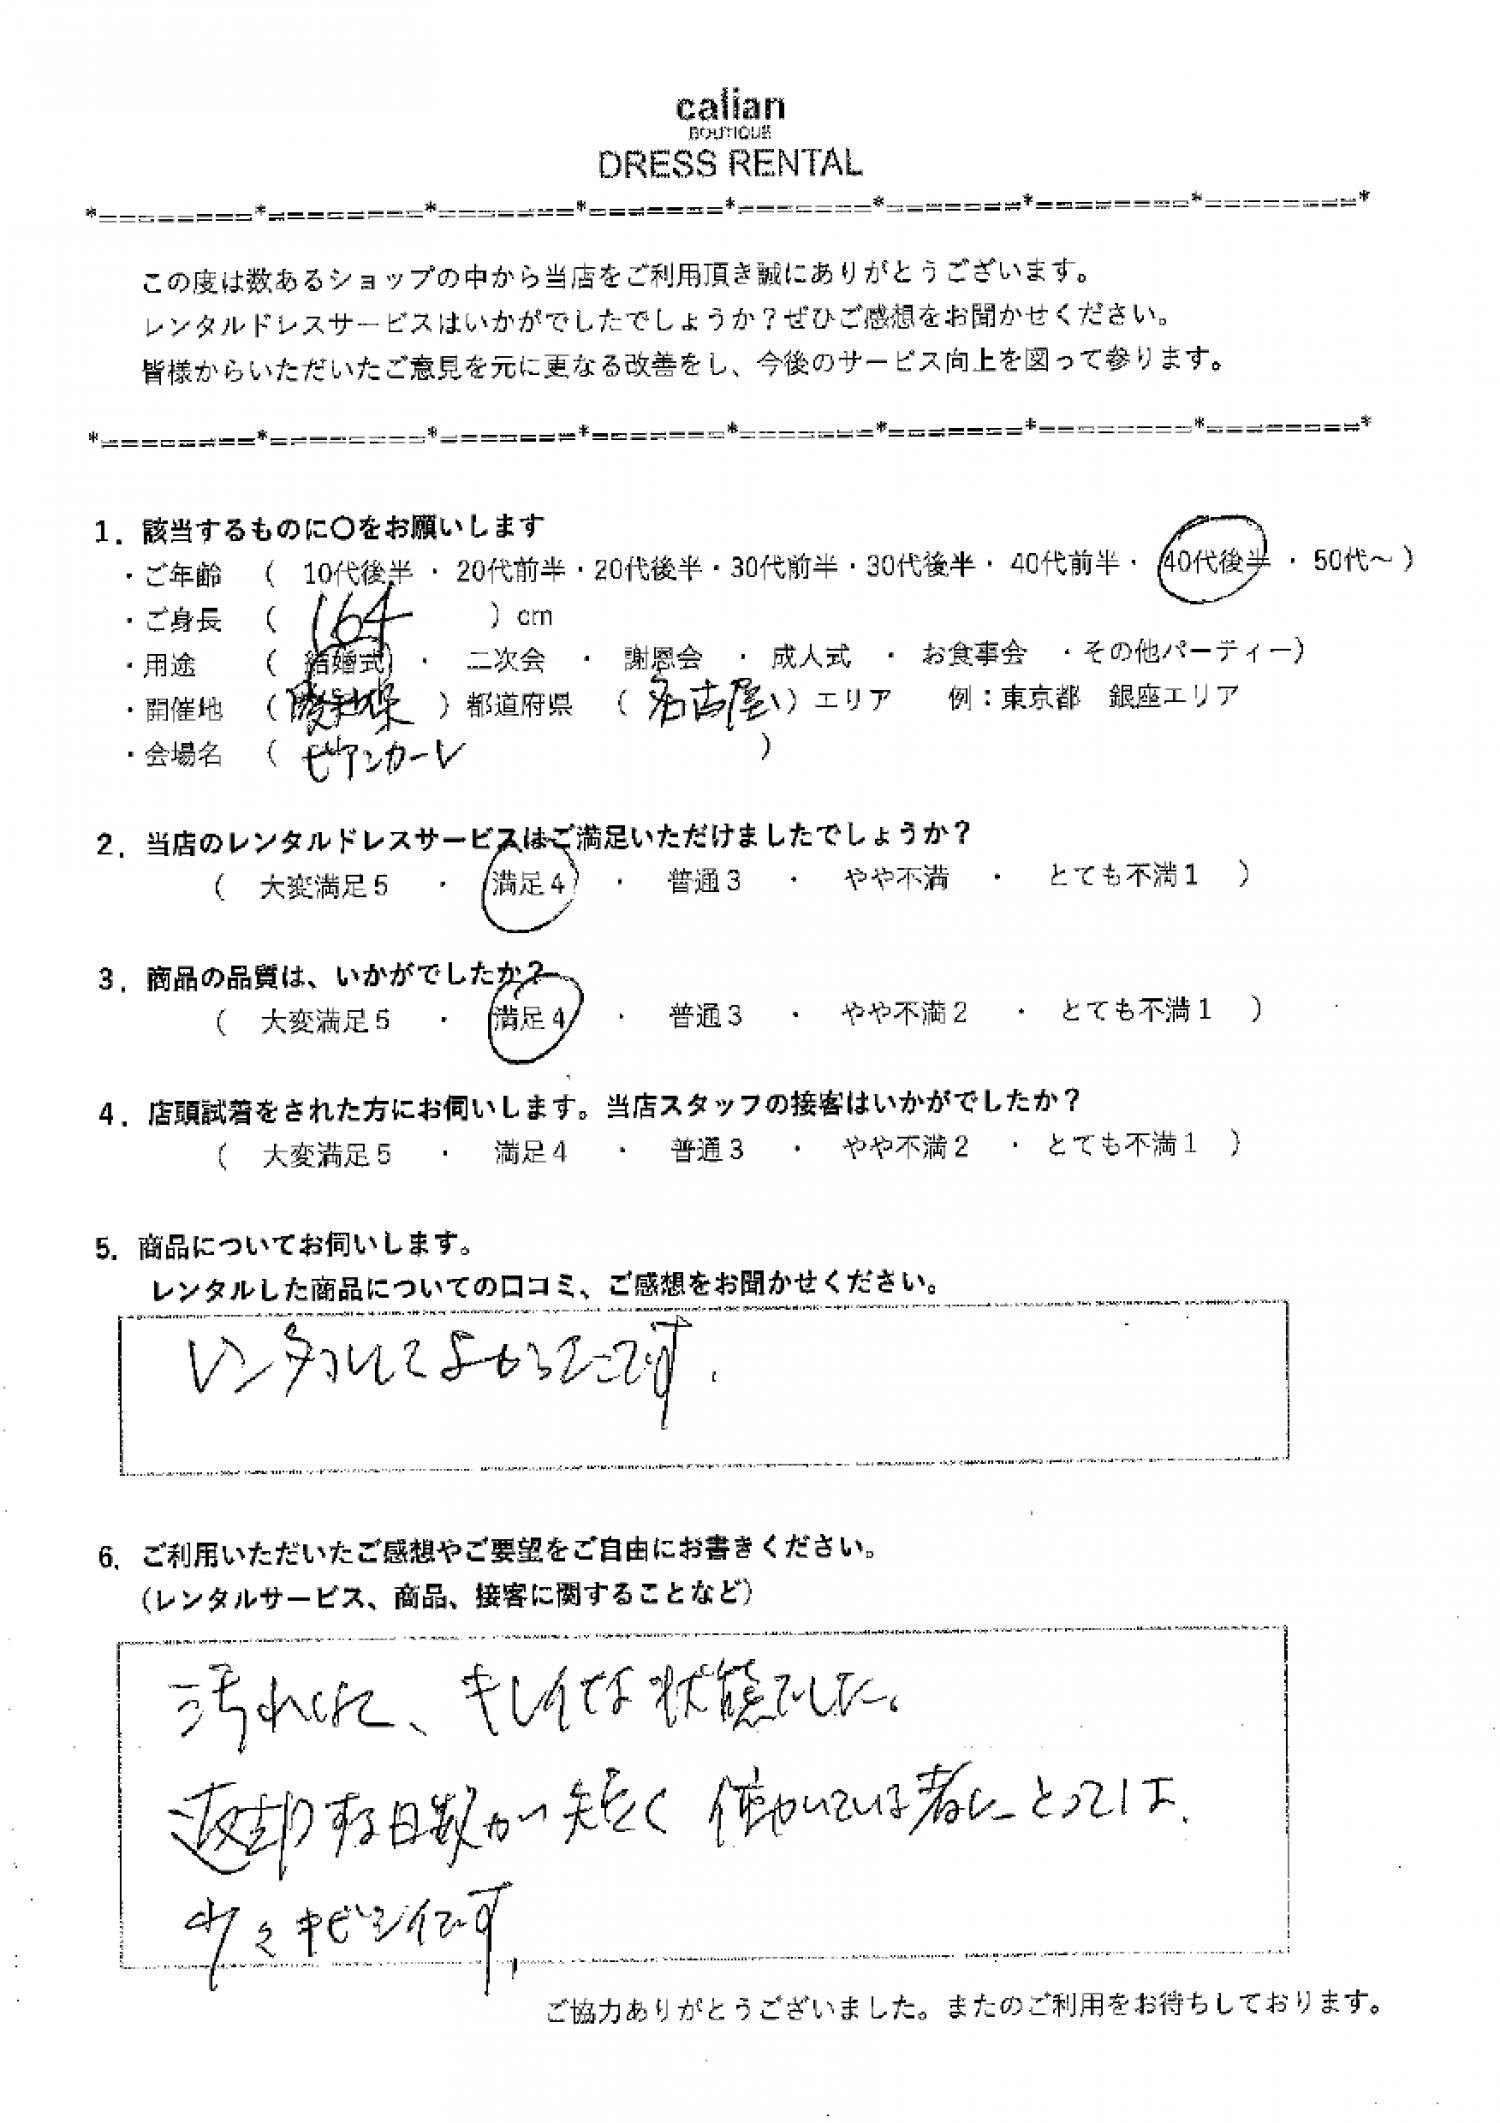 calian
BOUTIQUE
DRESS RENTAL
*=========*=========*========*========*========*========*=========*=========*
この度は数あるショップの中から当店をご利用頂き誠にありがとうございます。
レンタルドレスサービスはいかがでしたでしょうか？ぜひご感想をお聞かせください。
皆様からいただいたご意見を元に更なる改善をし、今後のサービス向上を図って参ります。
*=========*=========*========*========*========*========*=========*=========*
1．該当するものに〇をお願いします
・ご年齢 （ 10代後半 ・ 20代前半・20代後半・30代前半・30代後半・ 40代前半・ 40代後半 ・ 50代～ ）
・ご身長 （ 164 ）cm
・用途 （ 結婚式 ・ 二次会 ・ 謝恩会 ・ 成人式 ・ お食事会 ・その他パーティー）
・開催地 （ ）都道府県 （ 名古屋 ）エリア 例：東京都 銀座エリア
・会場名 （ ビアンカーレ ）
2．当店のレンタルドレスサービスはご満足いただけましたでしょうか？
（ 大変満足５ ・ 満足４ ・ 普通３ ・ やや不満 ・ とても不満１ ）
3．商品の品質は、いかがでしたか？
（ 大変満足５ ・ 満足４ ・ 普通３ ・ やや不満２ ・ とても不満１ ）
4．店頭試着をされた方にお伺いします。当店スタッフの接客はいかがでしたか？
（ 大変満足５ ・ 満足４ ・ 普通３ ・ やや不満２ ・ とても不満１ ）
5．商品についてお伺いします。
レンタルした商品についての口コミ、ご感想をお聞かせください。
レンタルしてよかったです。
6．ご利用いただいたご感想やご要望をご自由にお書きください。
（レンタルサービス、商品、接客に関することなど）
汚れなく、キレイな状態でした。
返却する日数が短く 働いている者にとっては、
少々キビシイです。
ご協力ありがとうございました。またのご利用をお待ちしております。